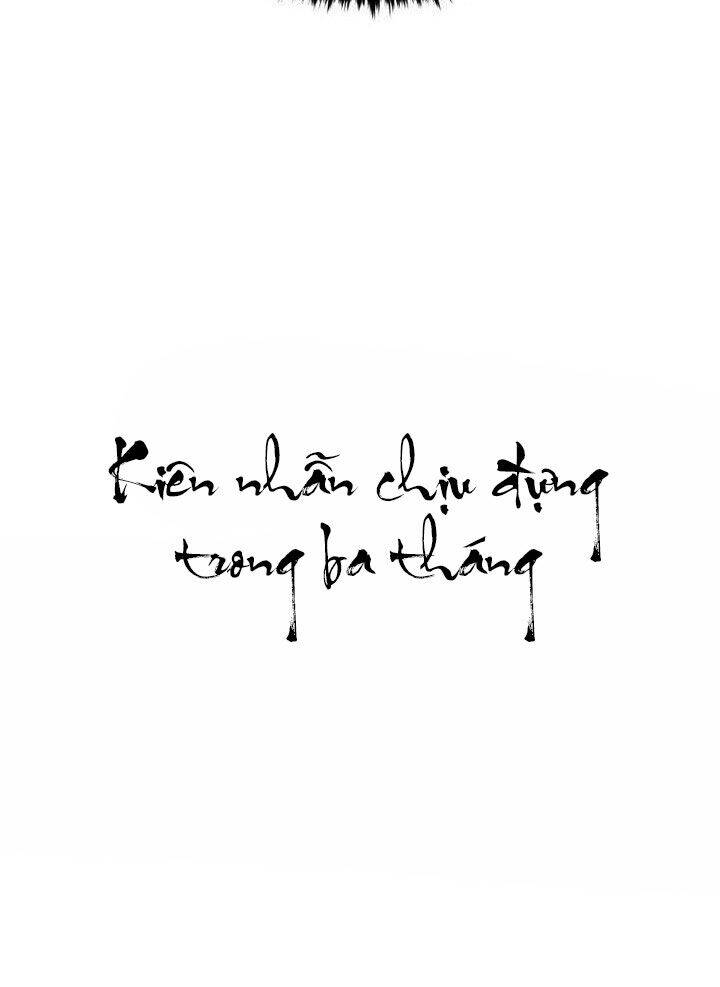 Kiên nhẫn chịu đựng
trong ba tháng